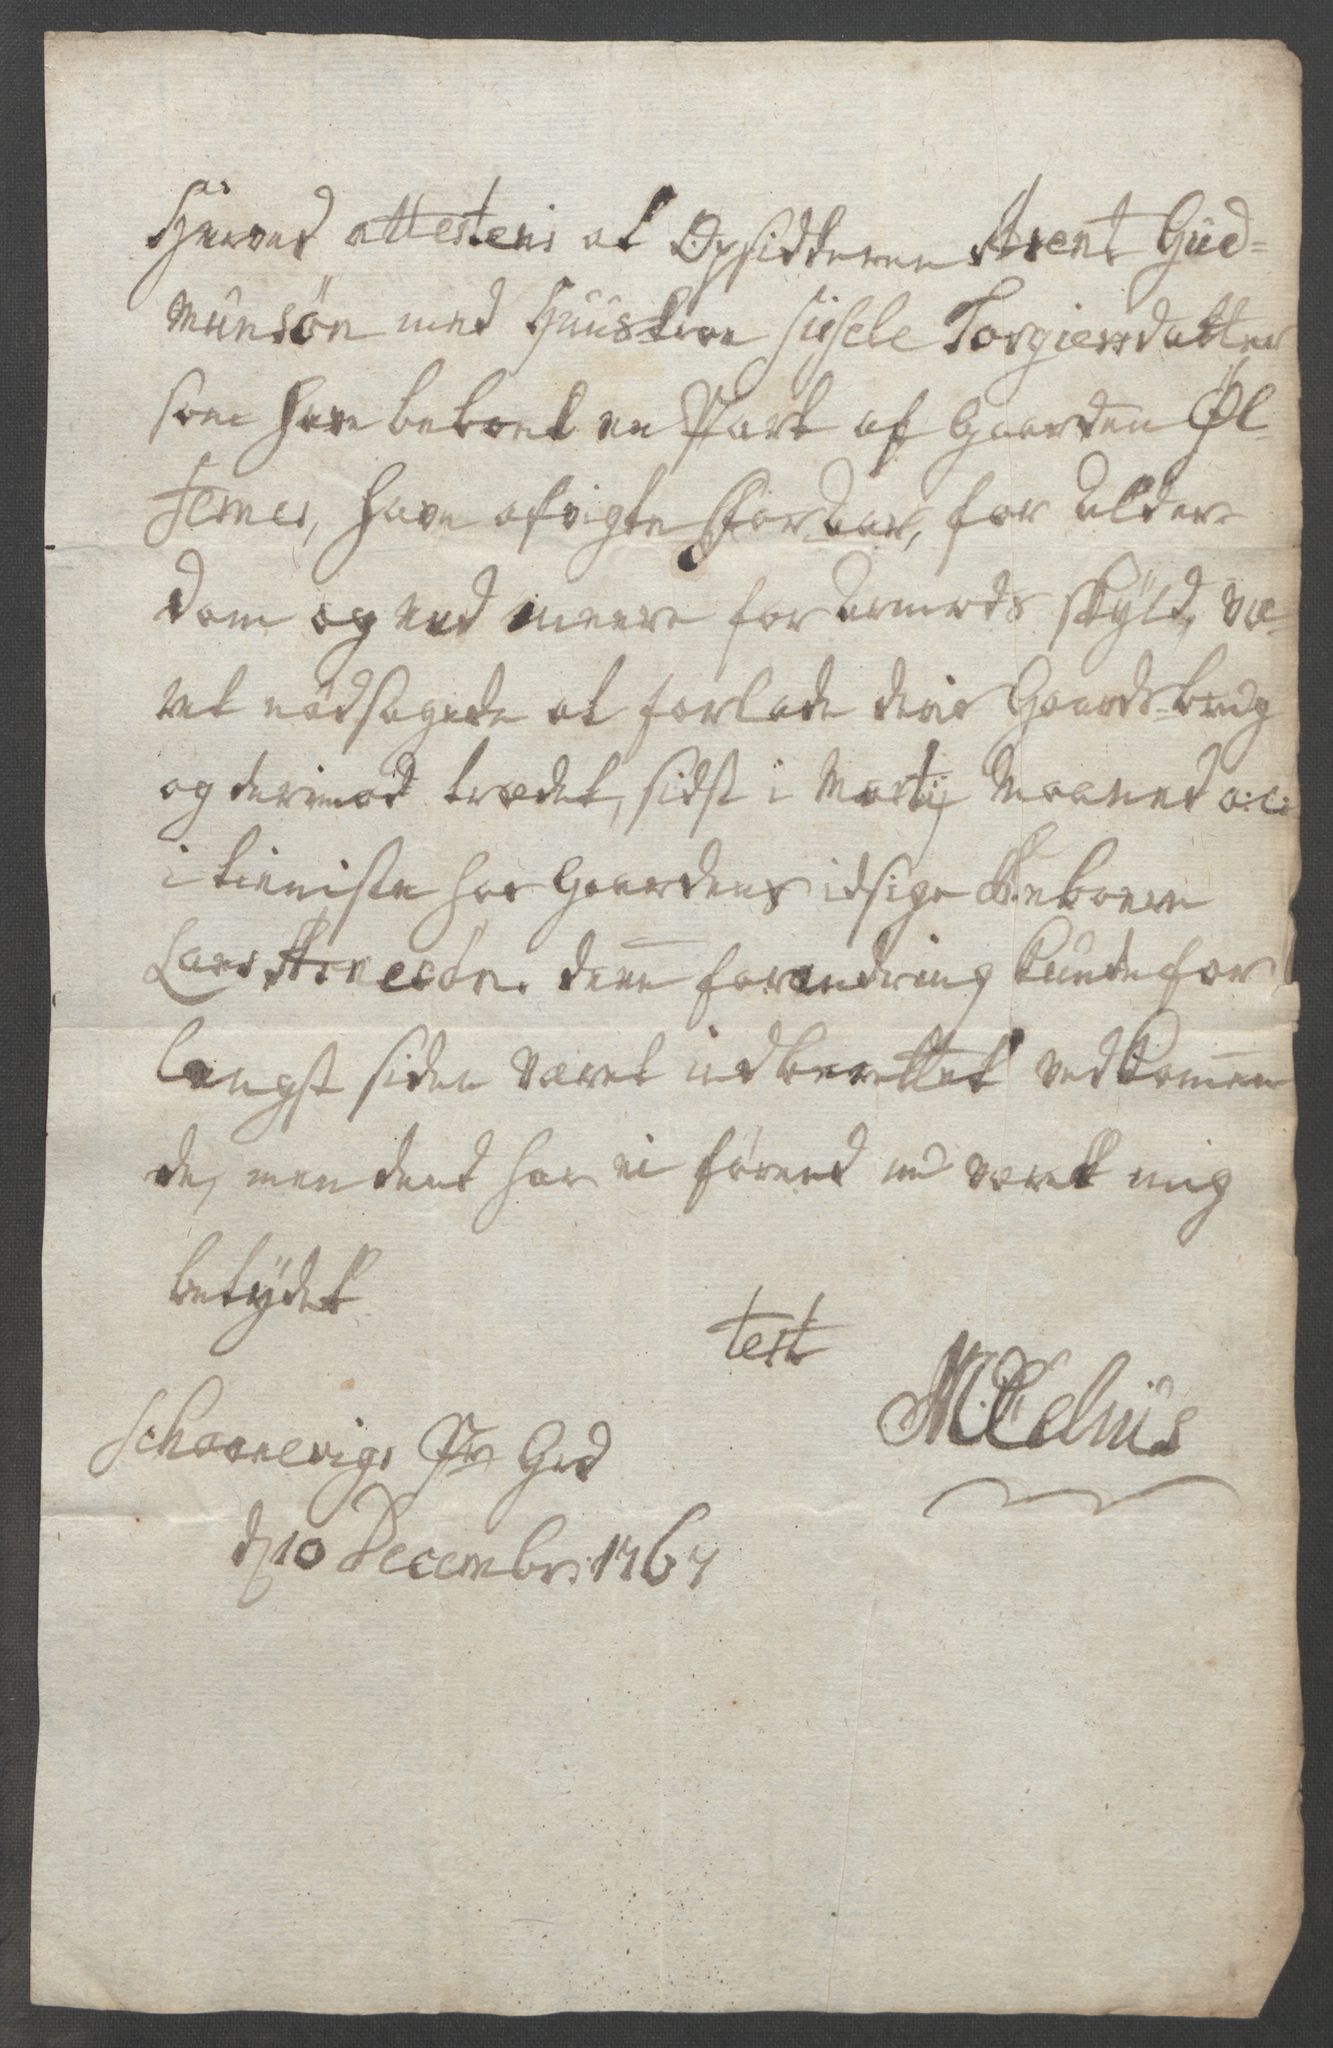 Herved attesteris at Opsidderen Arent Gud-
munsøn med Huustrue Sidsele Torgiersdatter
som have beboet en Part af Gaarden Øl-
fernes, have afvigte Foraar, for Alder-
dom og end meere for Armods skyld, væ-
ret nødsagede at forlade deris Gaards-brug
og derimod trædet, sidst i Martij Maaned a: c:
i tieniste hos Gaardens idsige Beboere
Lars Arnesön. denne forandring kunde for
længst siden været indberettet vedkommen
de, men dend har ei førend nu været mig
betydet
test
MCelius
Schaanevigs Pr Grd
d 10 Decembr: 1767